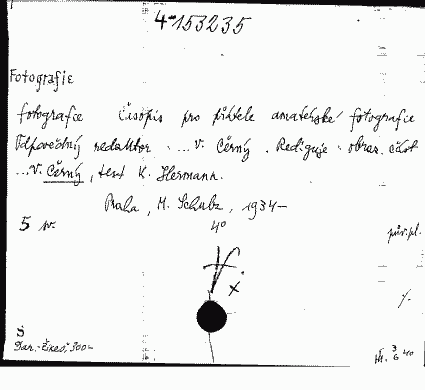 4-153235
Fotografie
fotografce Časopis pro přátele amatérské fotografie
Odpovědný redaktor: ...V. Černý. Rediguje: obraz. část
...V. Černý, text K. Hermann.
Praha, M. Schulz, 1934-
5 sv. 4°
přív. pl.
x
S
Dar.